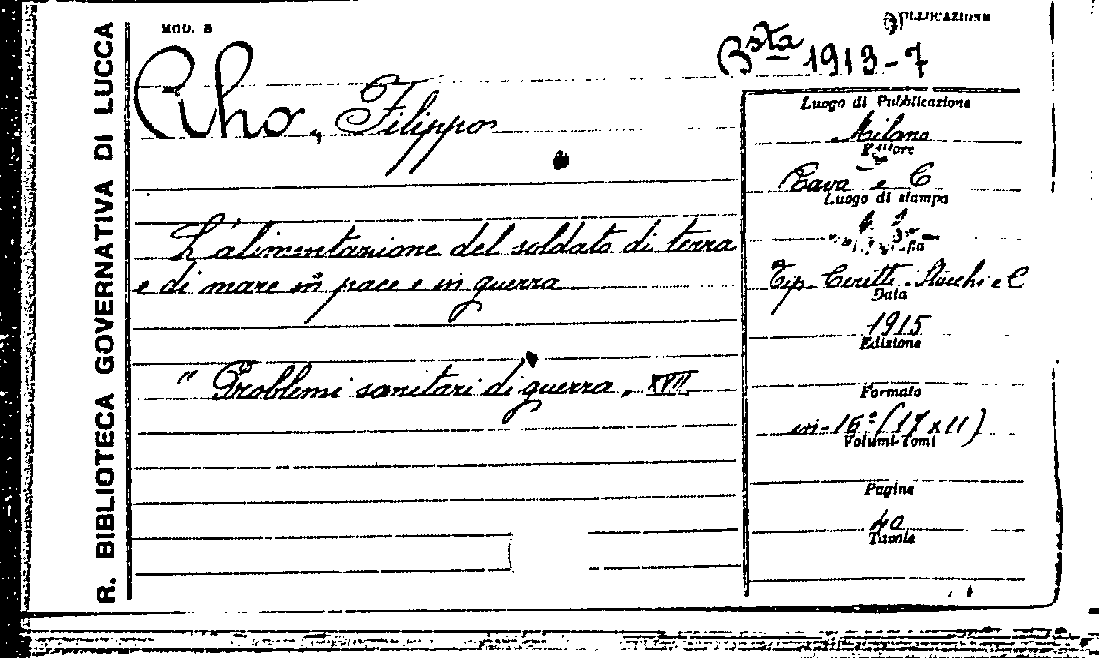 R. BIBLIOTECA GOVERNATIVA DI LUCCA
MOD. B
Bsta 1913-7
Rho, Filippo
L'alimentazione del soldato di terra
e di mare in pace e in guerra
" Problemi sanitari di guerra, XVII
Luogo di Pubblicazione
Milano
Editore
Rava e C
Luogo di stampa
Tip. Ceretti. Stocchi e C
Data
1915
Edizione
Formato
in-16º (17x11)
Volumi-tomi
Pagine
40
Tavole